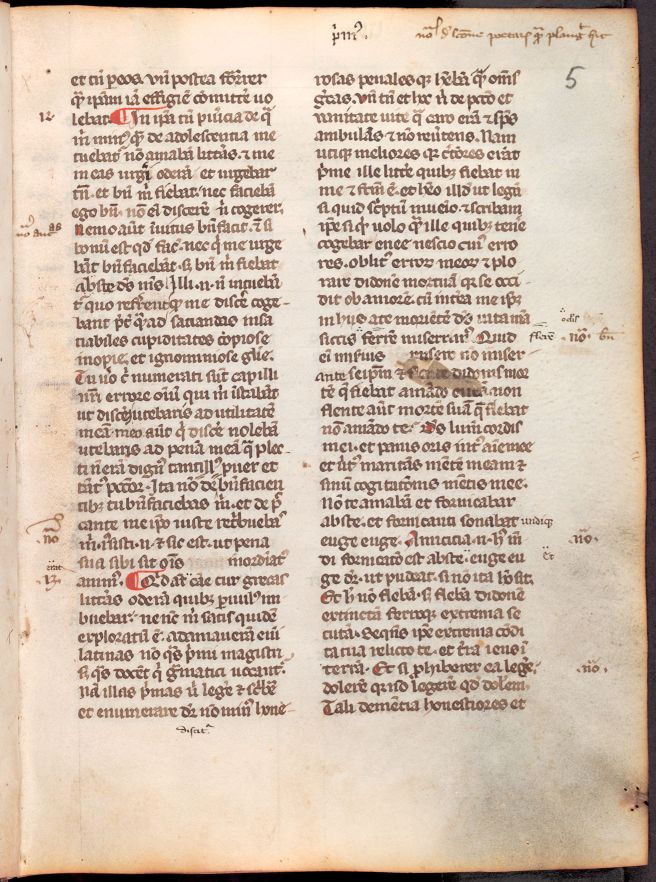 p̄m⁹.
5
et tūc p eos. Vn̄ postea formarer
qͣ ip̄am iā effigiē cōmitte uo
lebat. In ip̄a tn̄ puicia de qͣ
m̄ min⁹ qͣ de adolescentia me
tuebat᷑ nō amabā litt̄as. ⁊ me
in eas urgeri oderā. et urgebar
tn̄. et bn̄ m̄ fiebat. nec faciebā
ego bn̄. nō eī discerē n̄ cogerer.
Nemo aūt īuitus bn̄ facit. ⁊ si
bonū est qd̄ fac̄. nec qͥ me urge
bāt bn̄ faciebāt. sꝫ bn̄ m̄ fiebat
abs te dš mš. Illi .n. n̄ intuebā
t᷑ quo referrem qd̄ me discē coge-
bant p̄t̄ qͣ ad saciandas insa
ciabiles cupiditates copiose
inopie. et ignominiose glīe.
Tu ūo cͥ numerati sūt capilli
nr̄i errore oīm qui m̄ īstabāt
ut discē utebaris ad utilitatē
meā. meo aūt qͥ discē nolebā
utebaris ad penā meā qͣ plec-
ti n̄ erā dign⁹ tantill⁹ puer et
tāt⁹ pcc̄or. Ita nō de bn̄ facien
tibꝫ tu bn̄ faciebas m̄. et de pec
cante me ip̄o iuste retͥbuebas
m̄. iusisti .n. ⁊ sic est. ut pena
sua sibi sit om̄s mordiat⁹
anim⁹. Qd̄ aūt cāe cur grecas
litt̄as oderā quibꝫ puul⁹ im-
buebar. ne nc̄ m̄ satis quidē
exploratū ē. adamauerā enī
latinas nō qͣs p̄mi magistri
sꝫ qͣs docēt qͥ grāmatici uocant᷑.
Nā illas p̄mas uͥ lege ⁊ scͥbē
et enumerare dr̄ nō min⁹ hone-
discit᷑
rosas penalesqꝫ hēbā qͣ om̄s
grecas. Vn̄ tn̄ et hoc n̄ de pctō et
uanitate uite qͣ caro erā ⁊ sp̄s
ambulās ⁊ nō reu̇tens. Nam
utiqꝫ meliores qꝛ cͨtores erāt
p̄me ille litt̄e quibꝫ fiebat in
me ⁊ fm̄ ē. et hēo illd̄ ut legā
si quid scͥptū inuēio. ⁊ scribam
ip̄e si qͥ uolo qͣ ille quibꝫ tenē
cogebar enee nescio cui⁹ erro
res. oblit⁹ errorꝫ meorꝫ ⁊ plo
rare didonē mortuā qꝛ se occi
dit ob amorē. cū int̄ea me ip̄ꝫ
in hijs a te moriētē dš uita mea
siccis ferrē miserrim⁹. Quid
eī mis̄ius misero nō miser
ante seip̄m ⁊ flente didonis mor
tē qͣ fiebat amādo eneā. non
flente aūt mortē suā qͣ fiebat
nō amādo te. Dš lum̄ cordis
mei. et panis oris int⁹ aīe mee
et uͥt⁹ maritās mētē meam ⁊
sinū cogitatōnis mētis mee.
Nō te amabā et fornicabar
abs te. et fornicanti sonabat undiqꝫ
euge euge. Amicicia .n. h⁹ mͥ
di fornicatō est abs te. euge eu
ge dr̄. ut pudeat si nō ita hō sit.
Et h̄ nō flebā. sꝫ flebā didonē
extinctā ferroqꝫ extrema se
cutā. Seqūs ip̄e extrema cōdi
ta tua relicto te. et t̄ra iens ī
terrā. Et si phiberer ea lege.
dolerē qꝛ nō legerē qd̄ dolerem.
Tali dementia honestiores et
12
nō
13
nō. bn̄
flere
.nō.
et
.nō.